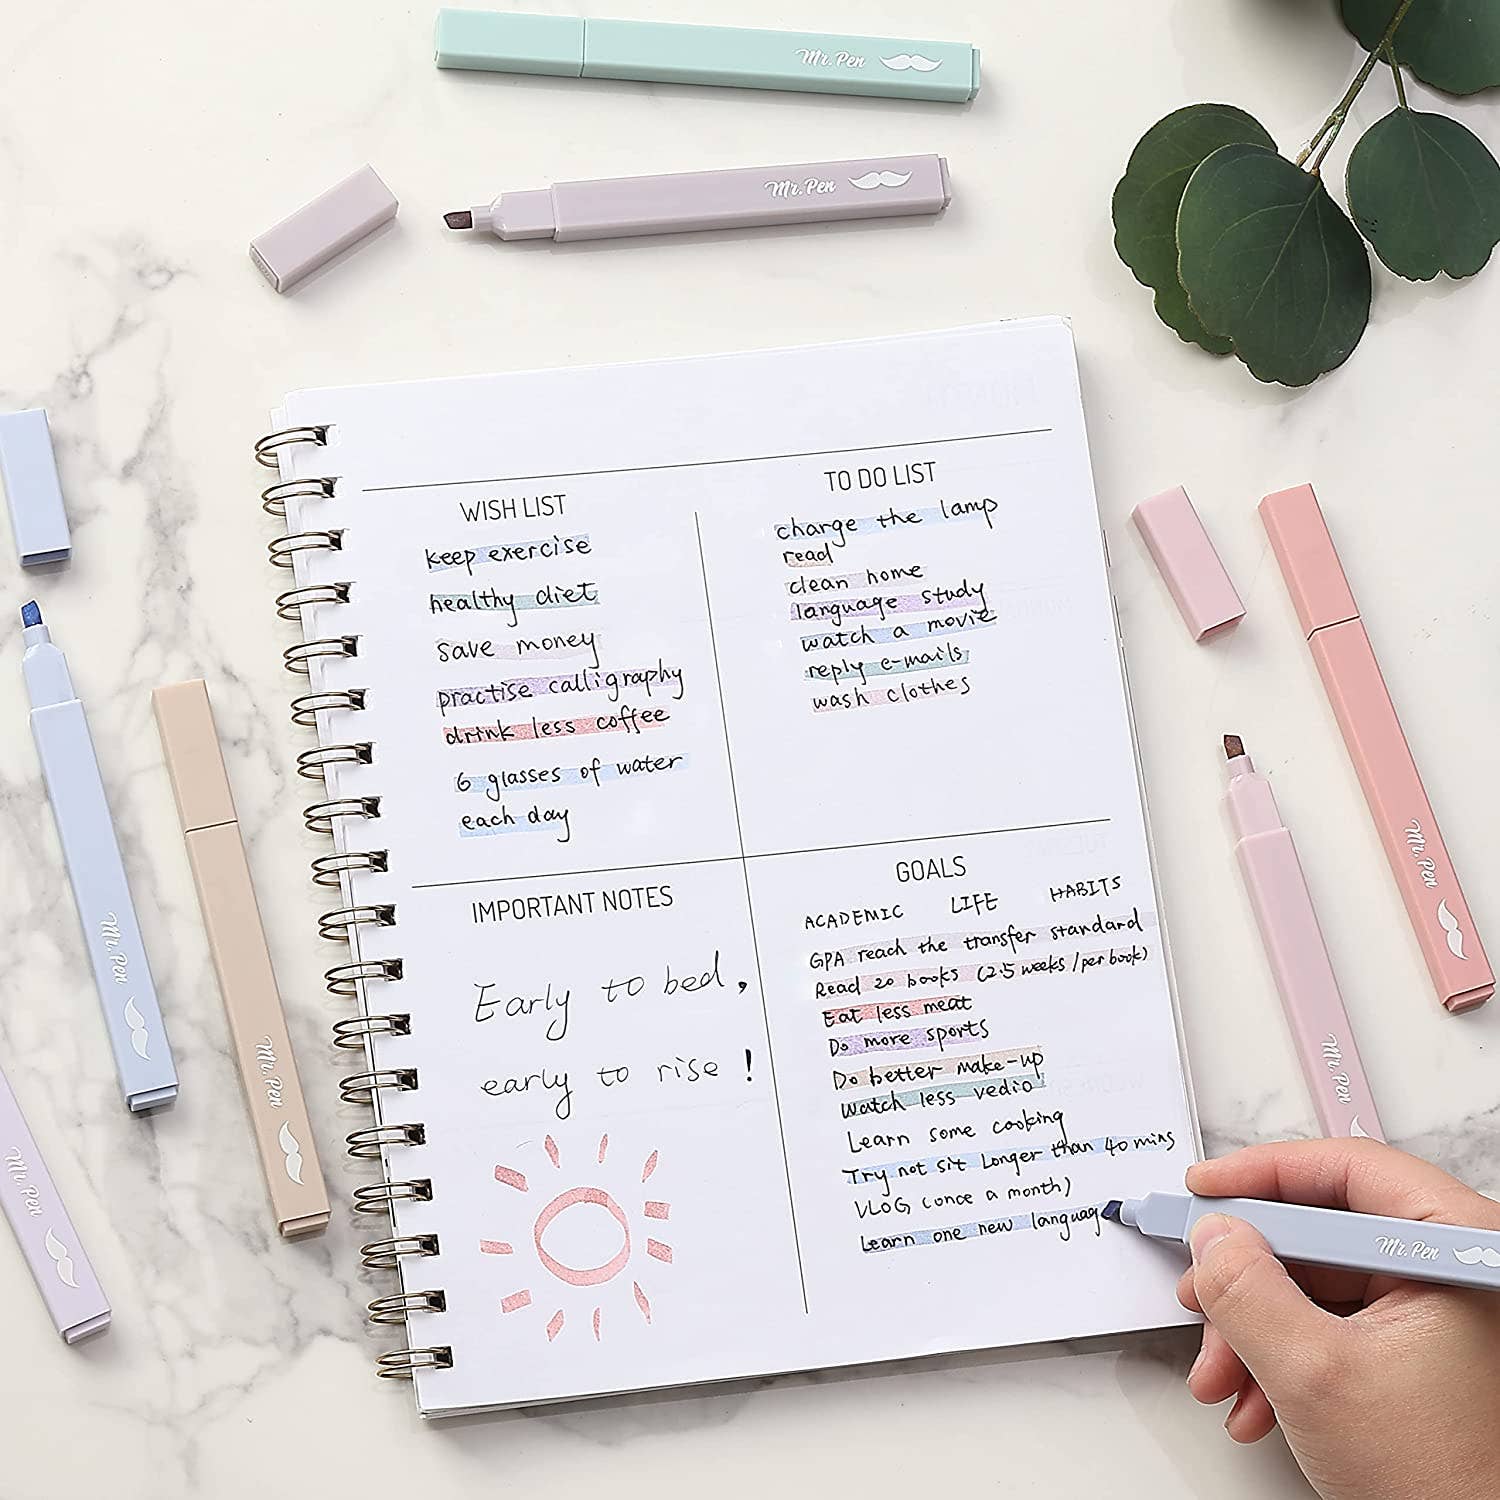 Mr. Pen
Mr. Pen
WISH LIST
keep exercise
healthy diet
save money
practise calligraphy
drink less coffee
6 glasses of water
each day
TO DO LIST
charge the lamp
read
clean home
language study
watch a movie
reply e-mails
wash clothes
IMPORTANT NOTES
Early to bed,
early to rise!
GOALS
ACADEMIC LIFE HABITS
GPA reach the transfer standard
Read 20 books (2.5 weeks/per book)
Eat less meat
Do more sports
Do better make-up
Watch less vedio
Learn some cooking
Try not sit Longer than 40 mins
VLOG (once a month)
Learn one new languag
Mr. Pen
Mr. Pen
Mr. Pen
Mr. Pen
Mr. Pen
Mr. Pen